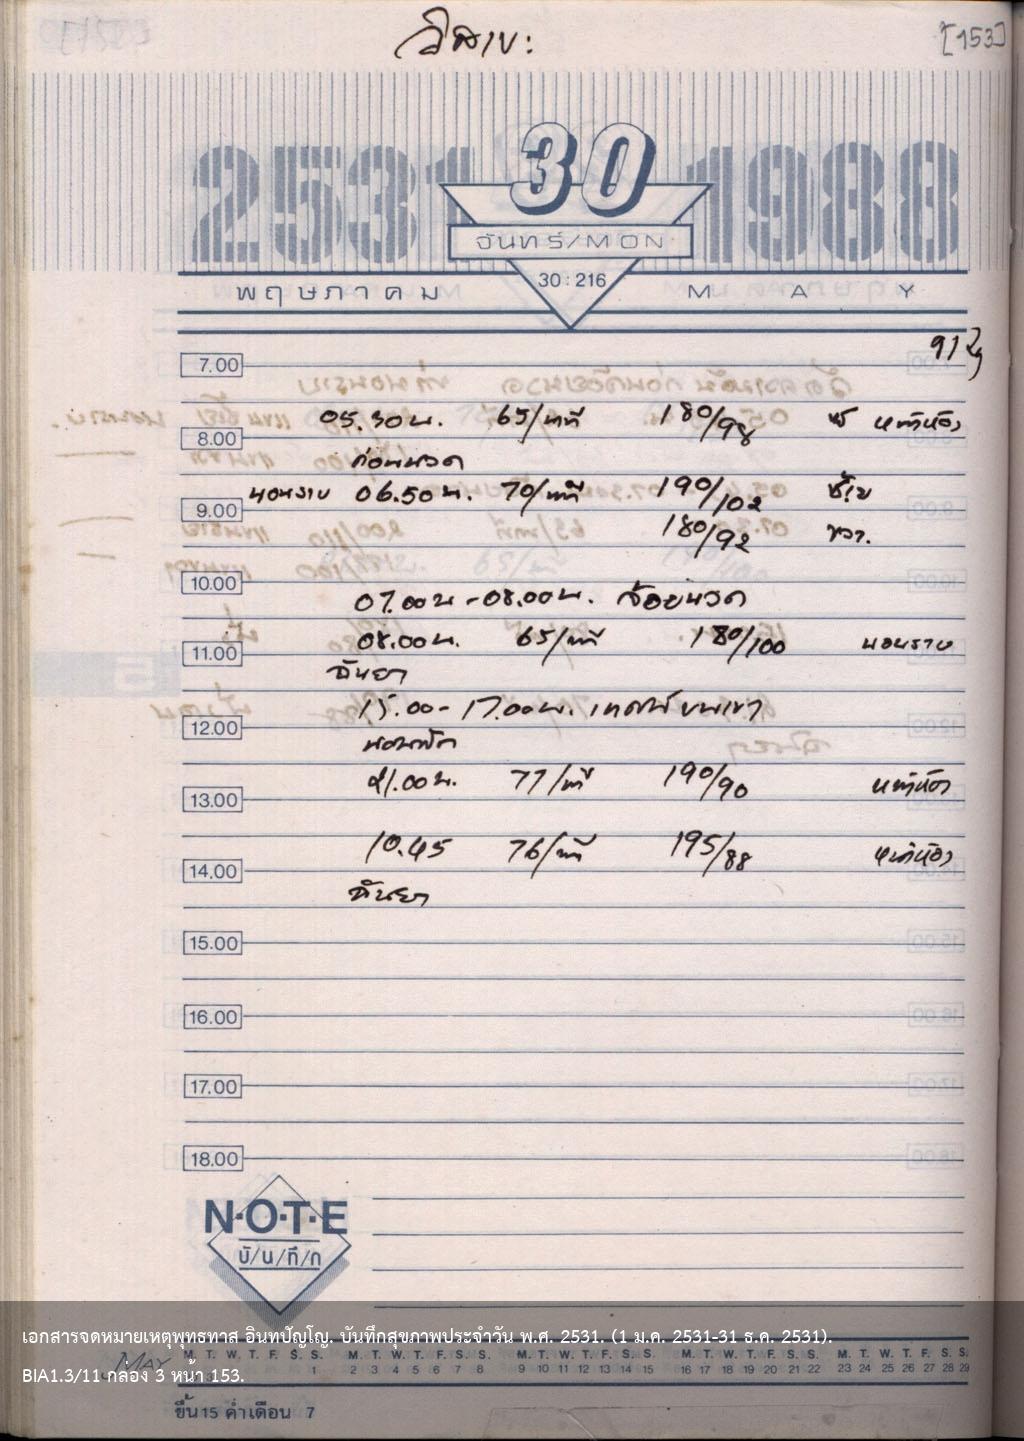 วิสาขะ
[153]
2531 30 1988
จันทร์/MON
30:216
พฤษภาคม MAY
7.00
05.30 น. 65/นาที 180/98
8.00
ก่อนนวด
นอนราบ 06.50 น. 70/นาที 190/102 ซ้าย
9.00
180/92 ขวา.
10.00
07.00 น - 08.00 น. จ้อยนวด
08.00 น. 65/นาที 180/100 นอนราบ
11.00
ฉันยา
15.00 - 17.00 น. เทศน์บนเขา
12.00
นอนพัก
21.00 น. 77/นาที 190/90
13.00
10.45 76/นาที 195/88
14.00
ฉันยา
15.00
16.00
17.00
18.00
N·O·T·E
บั/น/ทึ/ก
เอกสารจดหมายเหตุพุทธทาส อินทปัญโญ. บันทึกสุขภาพประจำวัน พ.ศ. 2531. (1 ม.ค. 2531-31 ธ.ค. 2531).
MAY M. T. W. T. F. S. S. M. T. W. T. F. S. S. M. T. W. T. F. S. S. M. T. W. T. F. S. S. M. T. W. T. F. S. S.
1 2 3 4 5 6 7 8 9 10 11 12 13 14 15 16 17 18 19 20 21 22 23 24 25 26 27 28 29
BIA1.3/11 กล่อง 3 หน้า 153.
ขึ้น 15 ค่ำเดือน 7